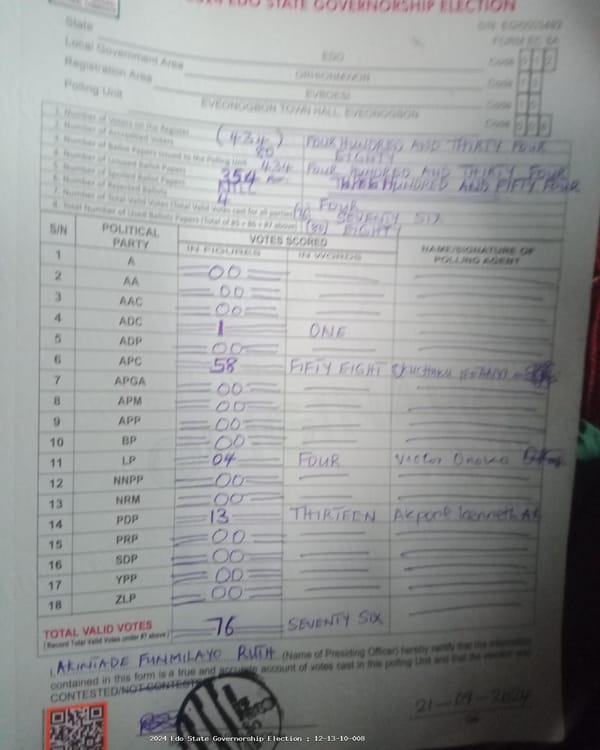 2024 EDO STATE GOVERNORSHIP ELECTION
State EDO Code
Local Government Area ORHIONMWON Code
Registration Area Code
Polling Unit EVBEONOGBON TOWN HALL, EVBEONOGBON Code
1. Number of Voters on the Register (434) FOUR HUNDRED AND THIRTY FOUR
2. Number of Accredited Voters 80 EIGHTY
3. Number of Ballot Papers Issued to the Polling Unit 434 FOUR HUNDRED AND THIRTY FOUR
4. Number of Unused Ballot Papers 354 THREE HUNDRED AND FIFTY FOUR
5. Number of Spoiled Ballot Papers
6. Number of Rejected Ballots 4 FOUR
7. Number of Total Valid Votes (Total Valid Votes cast for all parties) 76 SEVENTY SIX
8. Total Number of Used Ballot Papers (Total of #5 + #6 + #7 above) (80) EIGHTY
S/N POLITICAL PARTY VOTES SCORED NAME/SIGNATURE OF POLLING AGENT
IN FIGURES IN WORDS
1 A 00
2 AA 00
3 AAC 00
4 ADC 1 ONE
5 ADP 00
6 APC 58 FIFTY EIGHT
7 APGA 00
8 APM 00
9 APP 00
10 BP 00
11 LP 04 FOUR Victor
12 NNPP 00
13 NRM 00
14 PDP 13 THIRTEEN Akpore Kenneth
15 PRP 00
16 SDP 00
17 YPP 00
18 ZLP 00
TOTAL VALID VOTES 76 SEVENTY SIX
(Record Total Valid Votes under #7 above)
I, AKINTADE FUNMILAYO RUTH (Name of Presiding Officer) hereby certify that the information
contained in this form is a true and accurate account of votes cast in this polling Unit and that the election was
CONTESTED/NOT CONTESTED
21-09-2024
2024 Edo State Governorship Election : 12-13-10-008